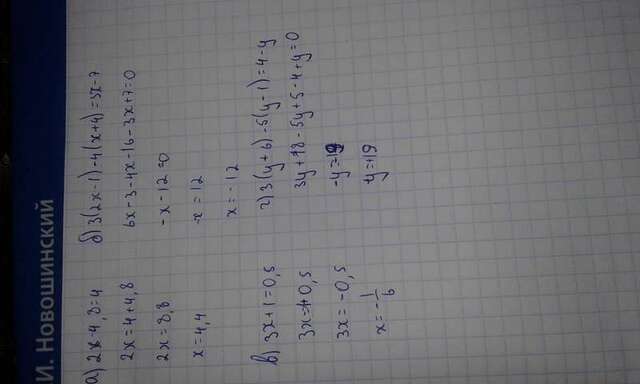 И. Новошинский
а) 2x-4,8=4
2x=4+4,8
2x=8,8
x=4,4
б) 3(2x-1)-4(x+4)=3x-7
6x-3-4x-16-3x+7=0
-x-12=0
-x=12
x=-12
в) 3x+1=0,5
3x=-1+0,5
3x=-0,5
x=-1/6
г) 3(y+6)-5(y-1)=4-y
3y+18-5y+5-4+y=0
-y=-19
+y=+19